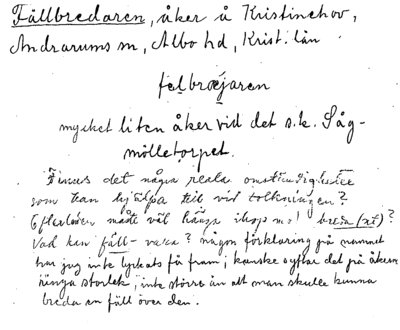 Fällbredaren, åker å Kristinehov,
Andrarums sn, Albo hd, Krist. län
felbræjaren
mycket liten åker vid det s.k. Såg-
mölletorpet.
Finnes det några reala omständigheter
som kan hjälpa till vid tolkningen?
Efterleden måtte väl hänga ihop m. breda (st)?
Vad kan fäll- vara? någon förklaring på namnet
har jag inte lyckats få fram; kanske syftar det på åkerns
ringa storlek, inte större än att man skulle kunna
breda en fäll över den.